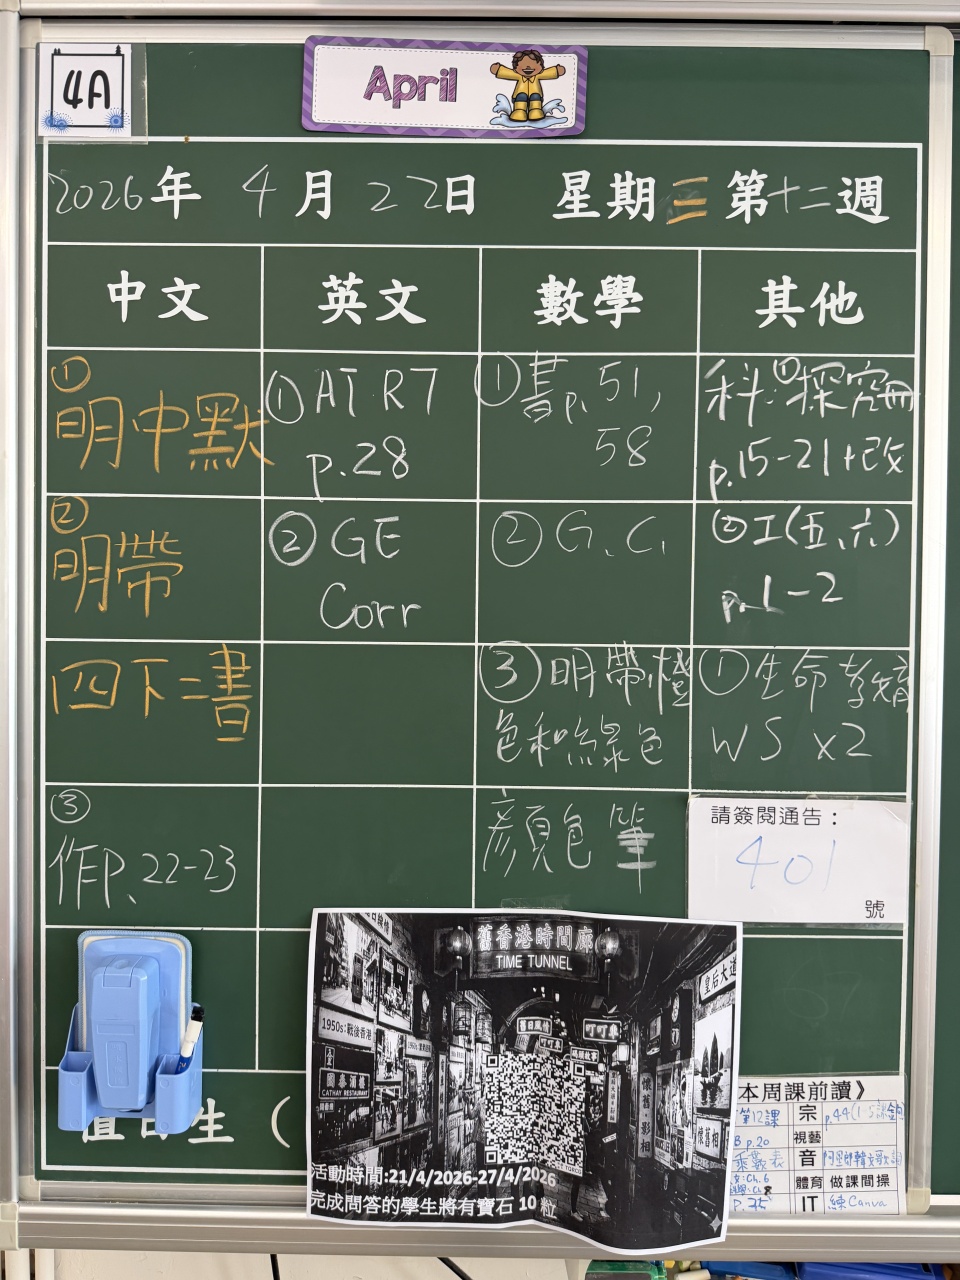 4A
April
2026年 4月22日 星期三 第十二週
中文 英文 數學 其他
①
明中默
①AT R7
p.28
①書p.51,
58
科:①探究冊
p.15-21+改
②
明帶
②GE
Corr
②G.C.
②工(五、六)
p.1-2
四下二書
③明帶橙
色和綠色
顏色筆
①生命教育
WS x2
③
作P.22-23
請簽閱通告:
401
號
舊香港時間廊
TIME TUNNEL
皇后大道
1950s:戰後香港
舊日風情
叮叮車
CATHAY RESTAURANT
懷舊影相
懷舊相
活動時間:21/4/2026-27/4/2026
完成問答的學生將有寶石 10 粒
生 (
本周課前讀》
第12課
宗
p.20
視藝
音
體育 做課間操
P.75
IT 練Canva